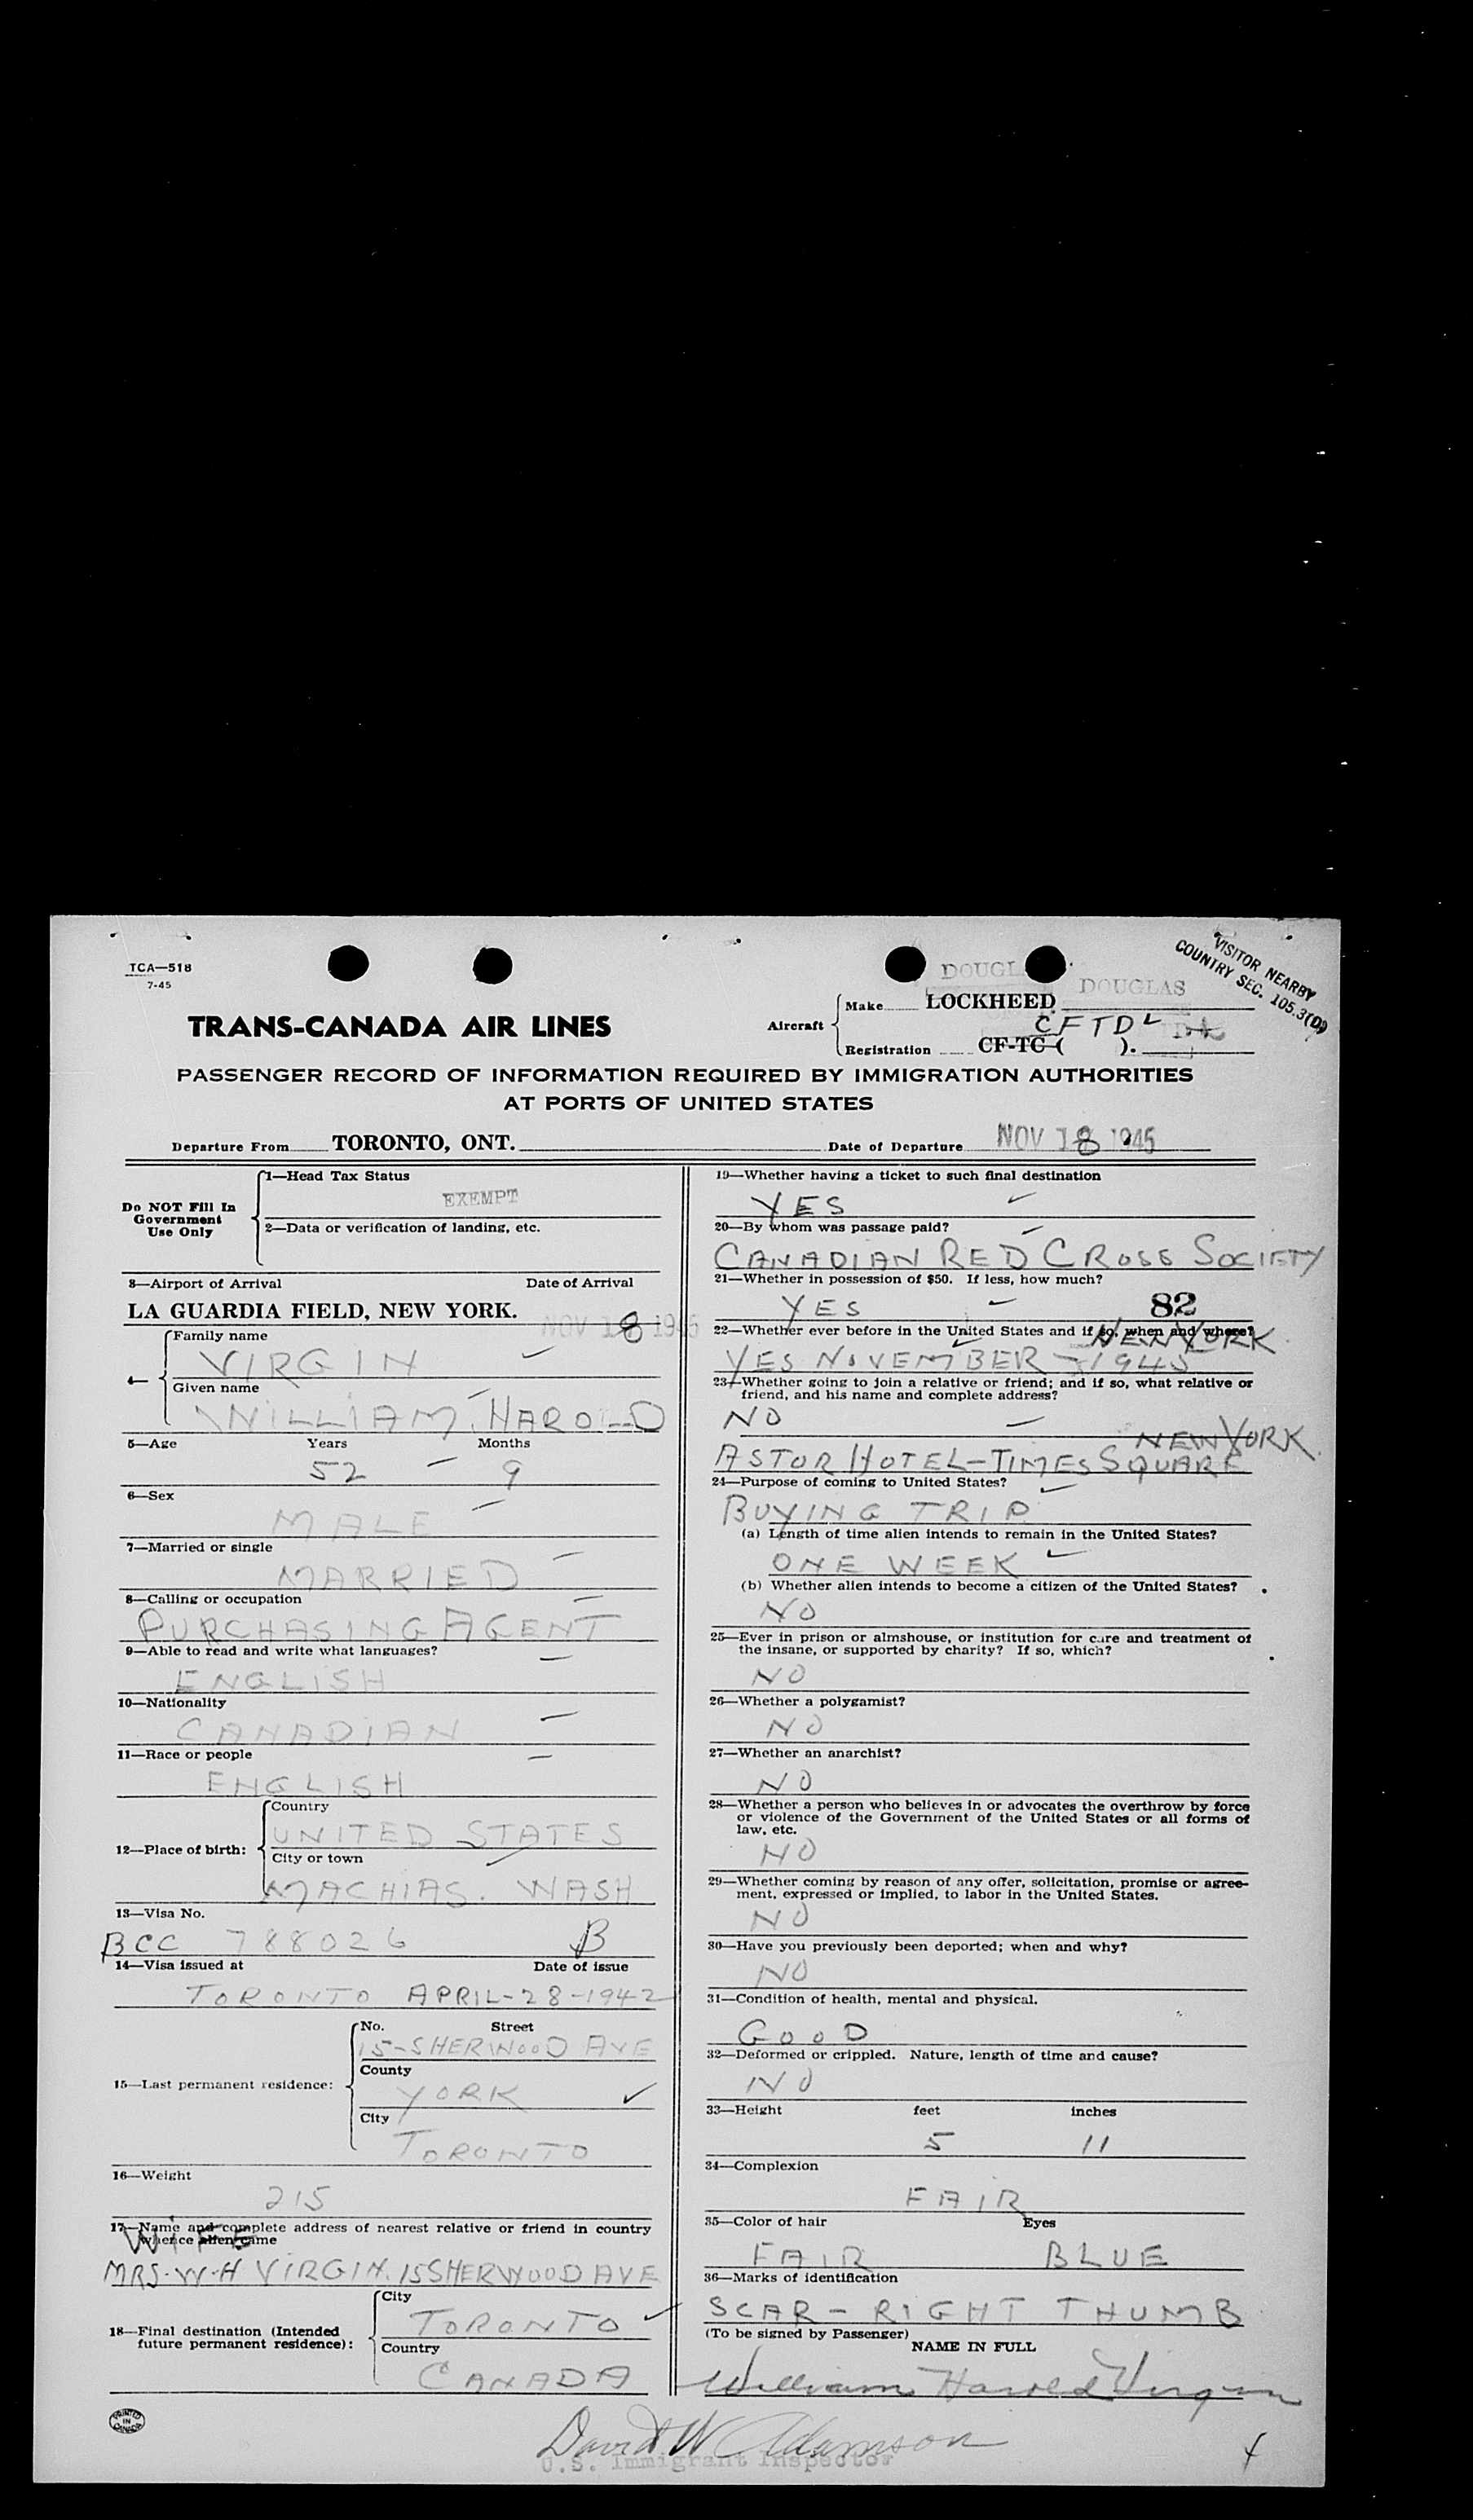 TCA—518
7-45
VISITOR NEARBY
COUNTRY SEC. 105.3(D)
DOUGL
DOUGLAS
TRANS-CANADA AIR LINES
Aircraft
Make LOCKHEED
CFTDL
Registration CF-TC ( ).
PASSENGER RECORD OF INFORMATION REQUIRED BY IMMIGRATION AUTHORITIES
AT PORTS OF UNITED STATES
Departure From TORONTO, ONT. Date of Departure NOV 18 1945
Do NOT Fill In
Government
Use Only
1—Head Tax Status
EXEMPT
2—Data or verification of landing, etc.
3—Airport of Arrival Date of Arrival
LA GUARDIA FIELD, NEW YORK. NOV 18 1945
4— Family name
VIRGIN
Given name
WILLIAM. HAROLD
5—Age Years Months
52 — 9
6—Sex
MALE
7—Married or single
MARRIED
8—Calling or occupation
PURCHASING AGENT
9—Able to read and write what languages?
ENGLISH
10—Nationality
CANADIAN
11—Race or people
ENGLISH
12—Place of birth:
Country
UNITED STATES
City or town
MACHIAS. WASH
13—Visa No.
BCC 788026 B
14—Visa issued at Date of issue
TORONTO APRIL-28-1942
15—Last permanent residence:
No. Street
15-SHERWOOD AVE
County
YORK
City
TORONTO
16—Weight
215
17—Name and complete address of nearest relative or friend in country
whence alien came
WIFE
MRS. W-H VIRGIN. 15 SHERWOOD AVE
18—Final destination (Intended
future permanent residence):
City
TORONTO
Country
CANADA
PRINTED
IN
CANADA
19—Whether having a ticket to such final destination
YES
20—By whom was passage paid?
CANADIAN RED CROSS SOCIETY
21—Whether in possession of $50. If less, how much?
YES 82
22—Whether ever before in the United States and if so, when and where?
NEW YORK
YES NOVEMBER - 1945
23—Whether going to join a relative or friend; and if so, what relative or
friend, and his name and complete address?
NO
NEW YORK.
ASTOR HOTEL-TIMES SQUARE
24—Purpose of coming to United States?
BUYING TRIP
(a) Length of time alien intends to remain in the United States?
ONE WEEK
(b) Whether alien intends to become a citizen of the United States?
NO
25—Ever in prison or almshouse, or institution for care and treatment of
the insane, or supported by charity? If so, which?
NO
26—Whether a polygamist?
NO
27—Whether an anarchist?
NO
28—Whether a person who believes in or advocates the overthrow by force
or violence of the Government of the United States or all forms of
law, etc.
NO
29—Whether coming by reason of any offer, solicitation, promise or agree-
ment, expressed or implied, to labor in the United States.
NO
30—Have you previously been deported; when and why?
NO
31—Condition of health, mental and physical.
GOOD
32—Deformed or crippled. Nature, length of time and cause?
NO
33—Height feet inches
5 11
34—Complexion
FAIR
35—Color of hair Eyes
FAIR BLUE
36—Marks of identification
SCAR - RIGHT THUMB
(To be signed by Passenger)
NAME IN FULL
William Harold Virgin
David W Adamson
U.S. Immigrant Inspector